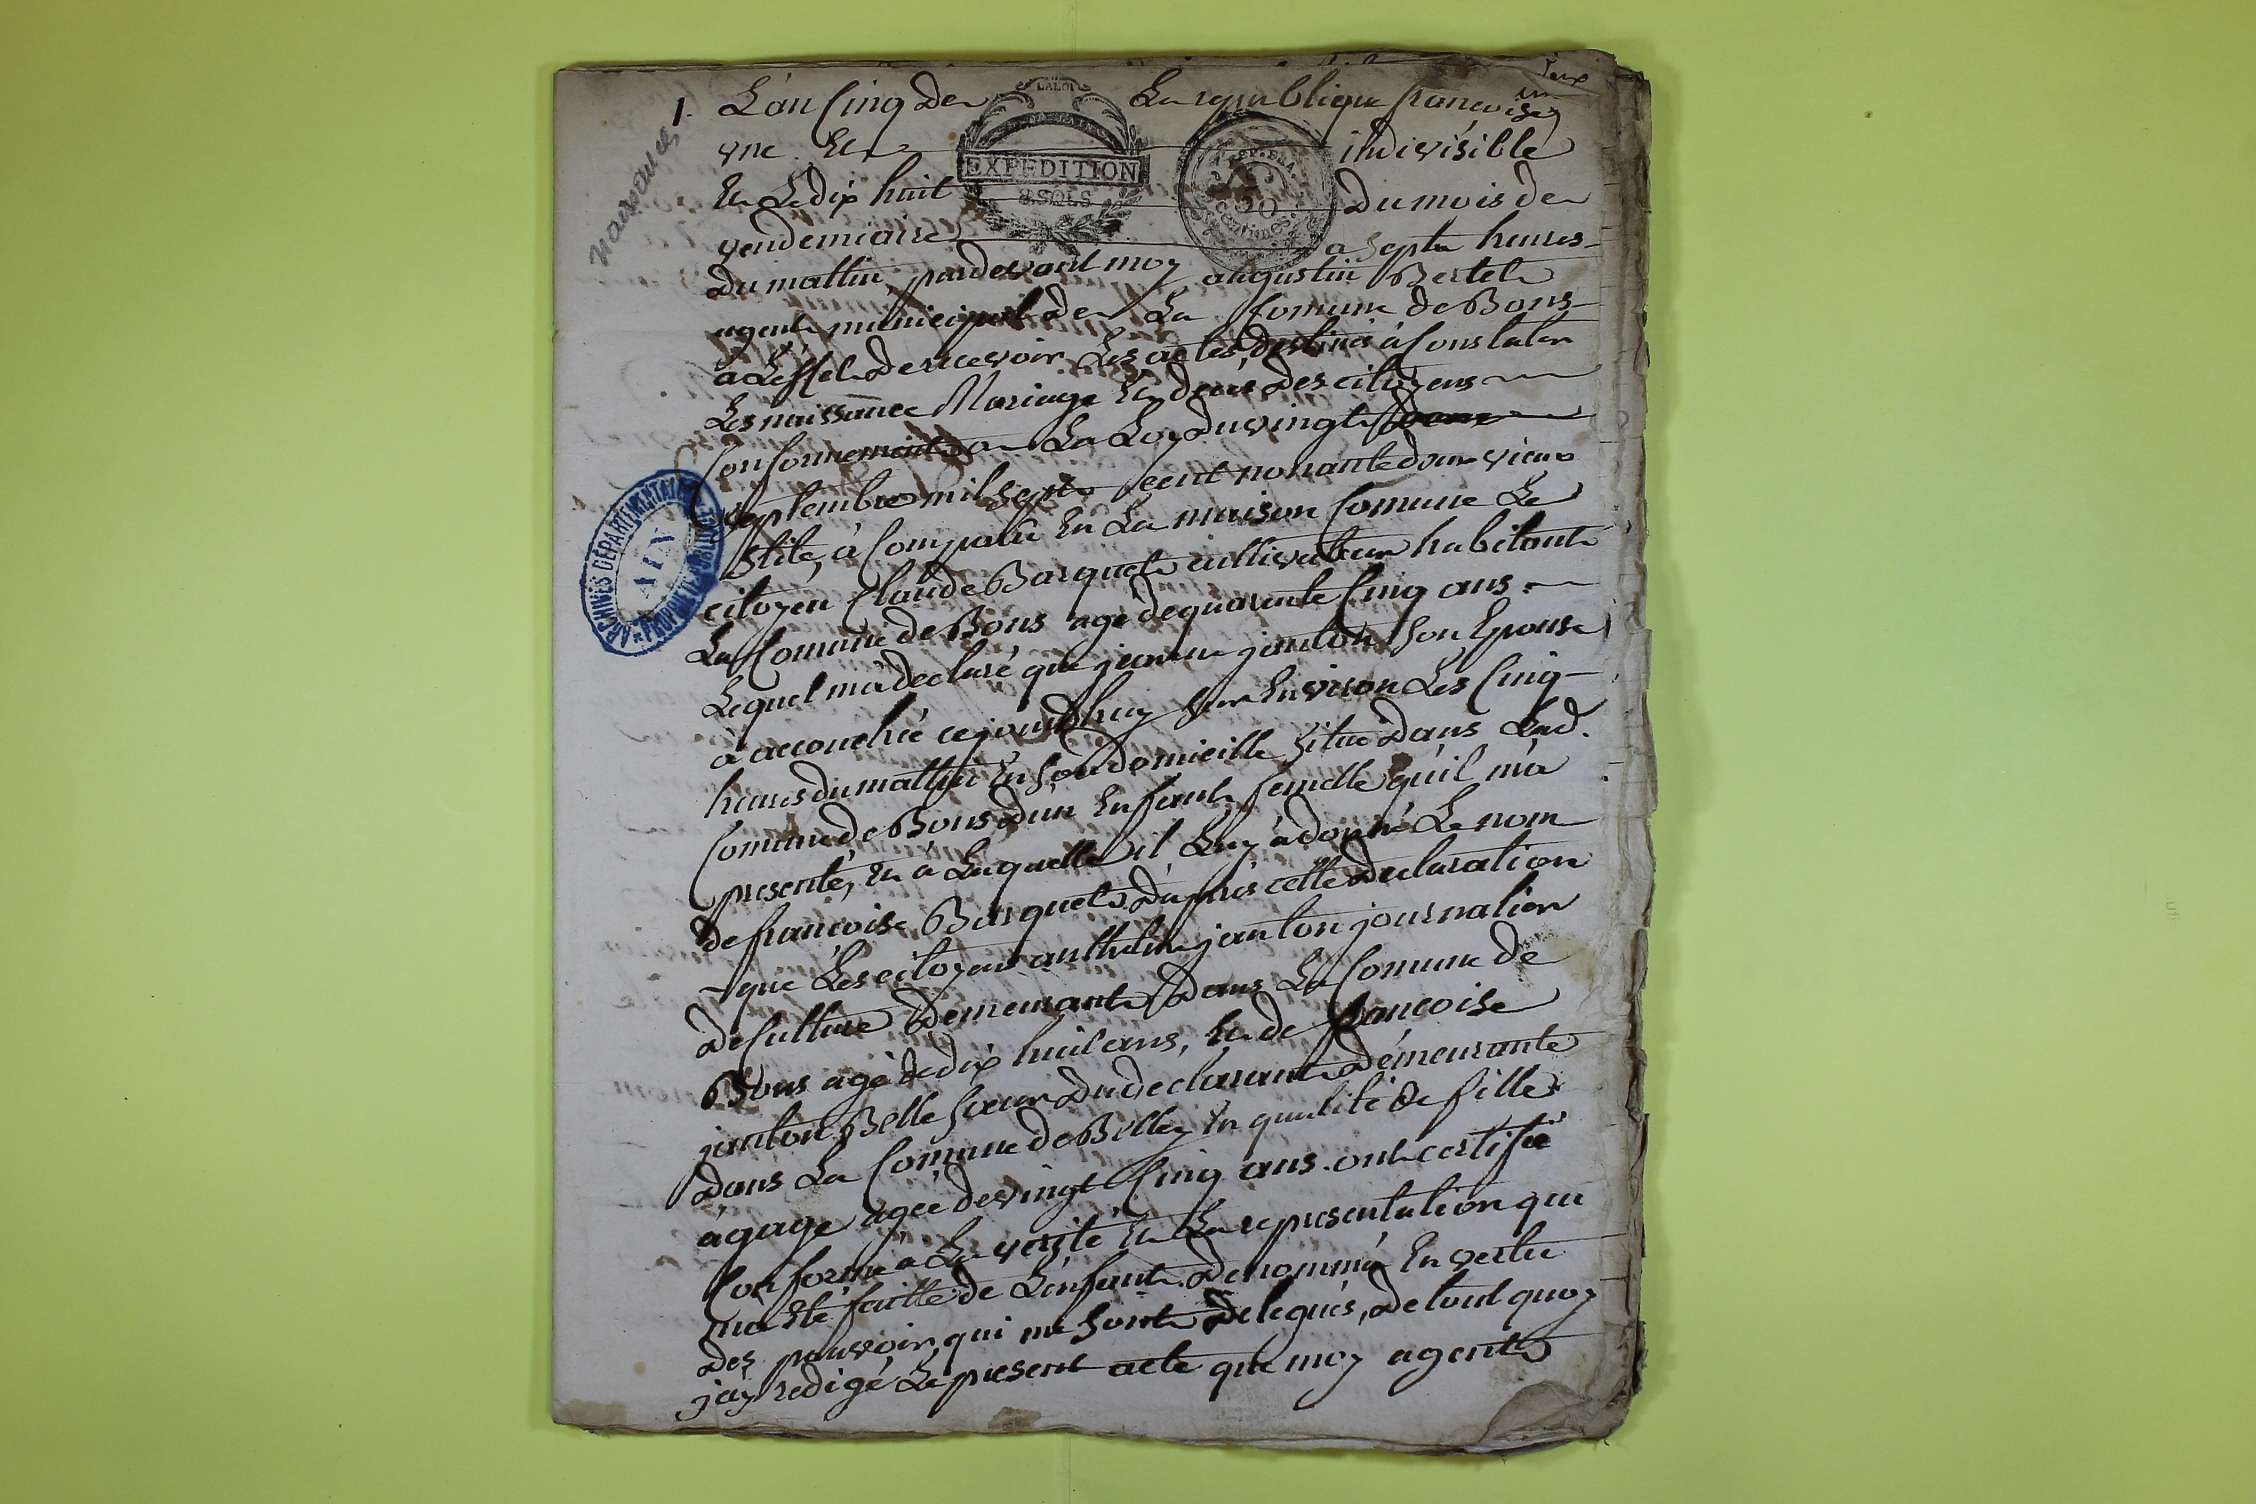 deux
un
1. L'an Cinq De La republique francoise
naissances
une Et indivisible
LA LOI
EXPEDITION
8 SOLS
REP. FRA.
50
centimes
Et Le dix huit Du mois de
vendemiaire a Septe heures
du mattin, pardevant moy augustin Bertet
agent municipal De La Comune de Bons
a L'effet De recevoir Les actes destinés à Constater
Les naissance Mariage Et deces Des citoyens
Conformement a La Loy Du vingt
septembre mil sept cent nonante deux vieux
stile, à Comparu En La maison Comune Le
citoyen Claude Barquet cultivateur habitant
La Comune de Bons agé de quarente Cinq ans
Lequel m'à declaré que jeanne janton son Epouse
à accouchée cejourdhuy sur Environ Les Cinq
heures du mattin En son domicille situé Dans Lad.
Comune de Bons D'un Enfant femelle qu'il m'à
presenté, Et à Laquelle il Luy à donné Le nom
de francoise Barquet D'après cette Declaration
que Les citoyens anthelme janton journalier
De Culture Demeurant Dans La Comune de
Bons agé de dix huit ans, Et de francoise
janton Belle Sœur Du declarant Démeurante
Dans La Comune de Belley En qualité De fille
à gage agée de vingt Cinq ans ont certifié
Conforme à La verité Et La representation qui
m'à Eté faitte de L'enfant Denommé En vertu
Des pouvoir qui me Sont Delegués, De tout quoy
j'ay redigé Le present acte que moy agent
ARCHIVES DÉPARTEMENTALES
AIN
PROPRIÉTÉ PUBLIQUE